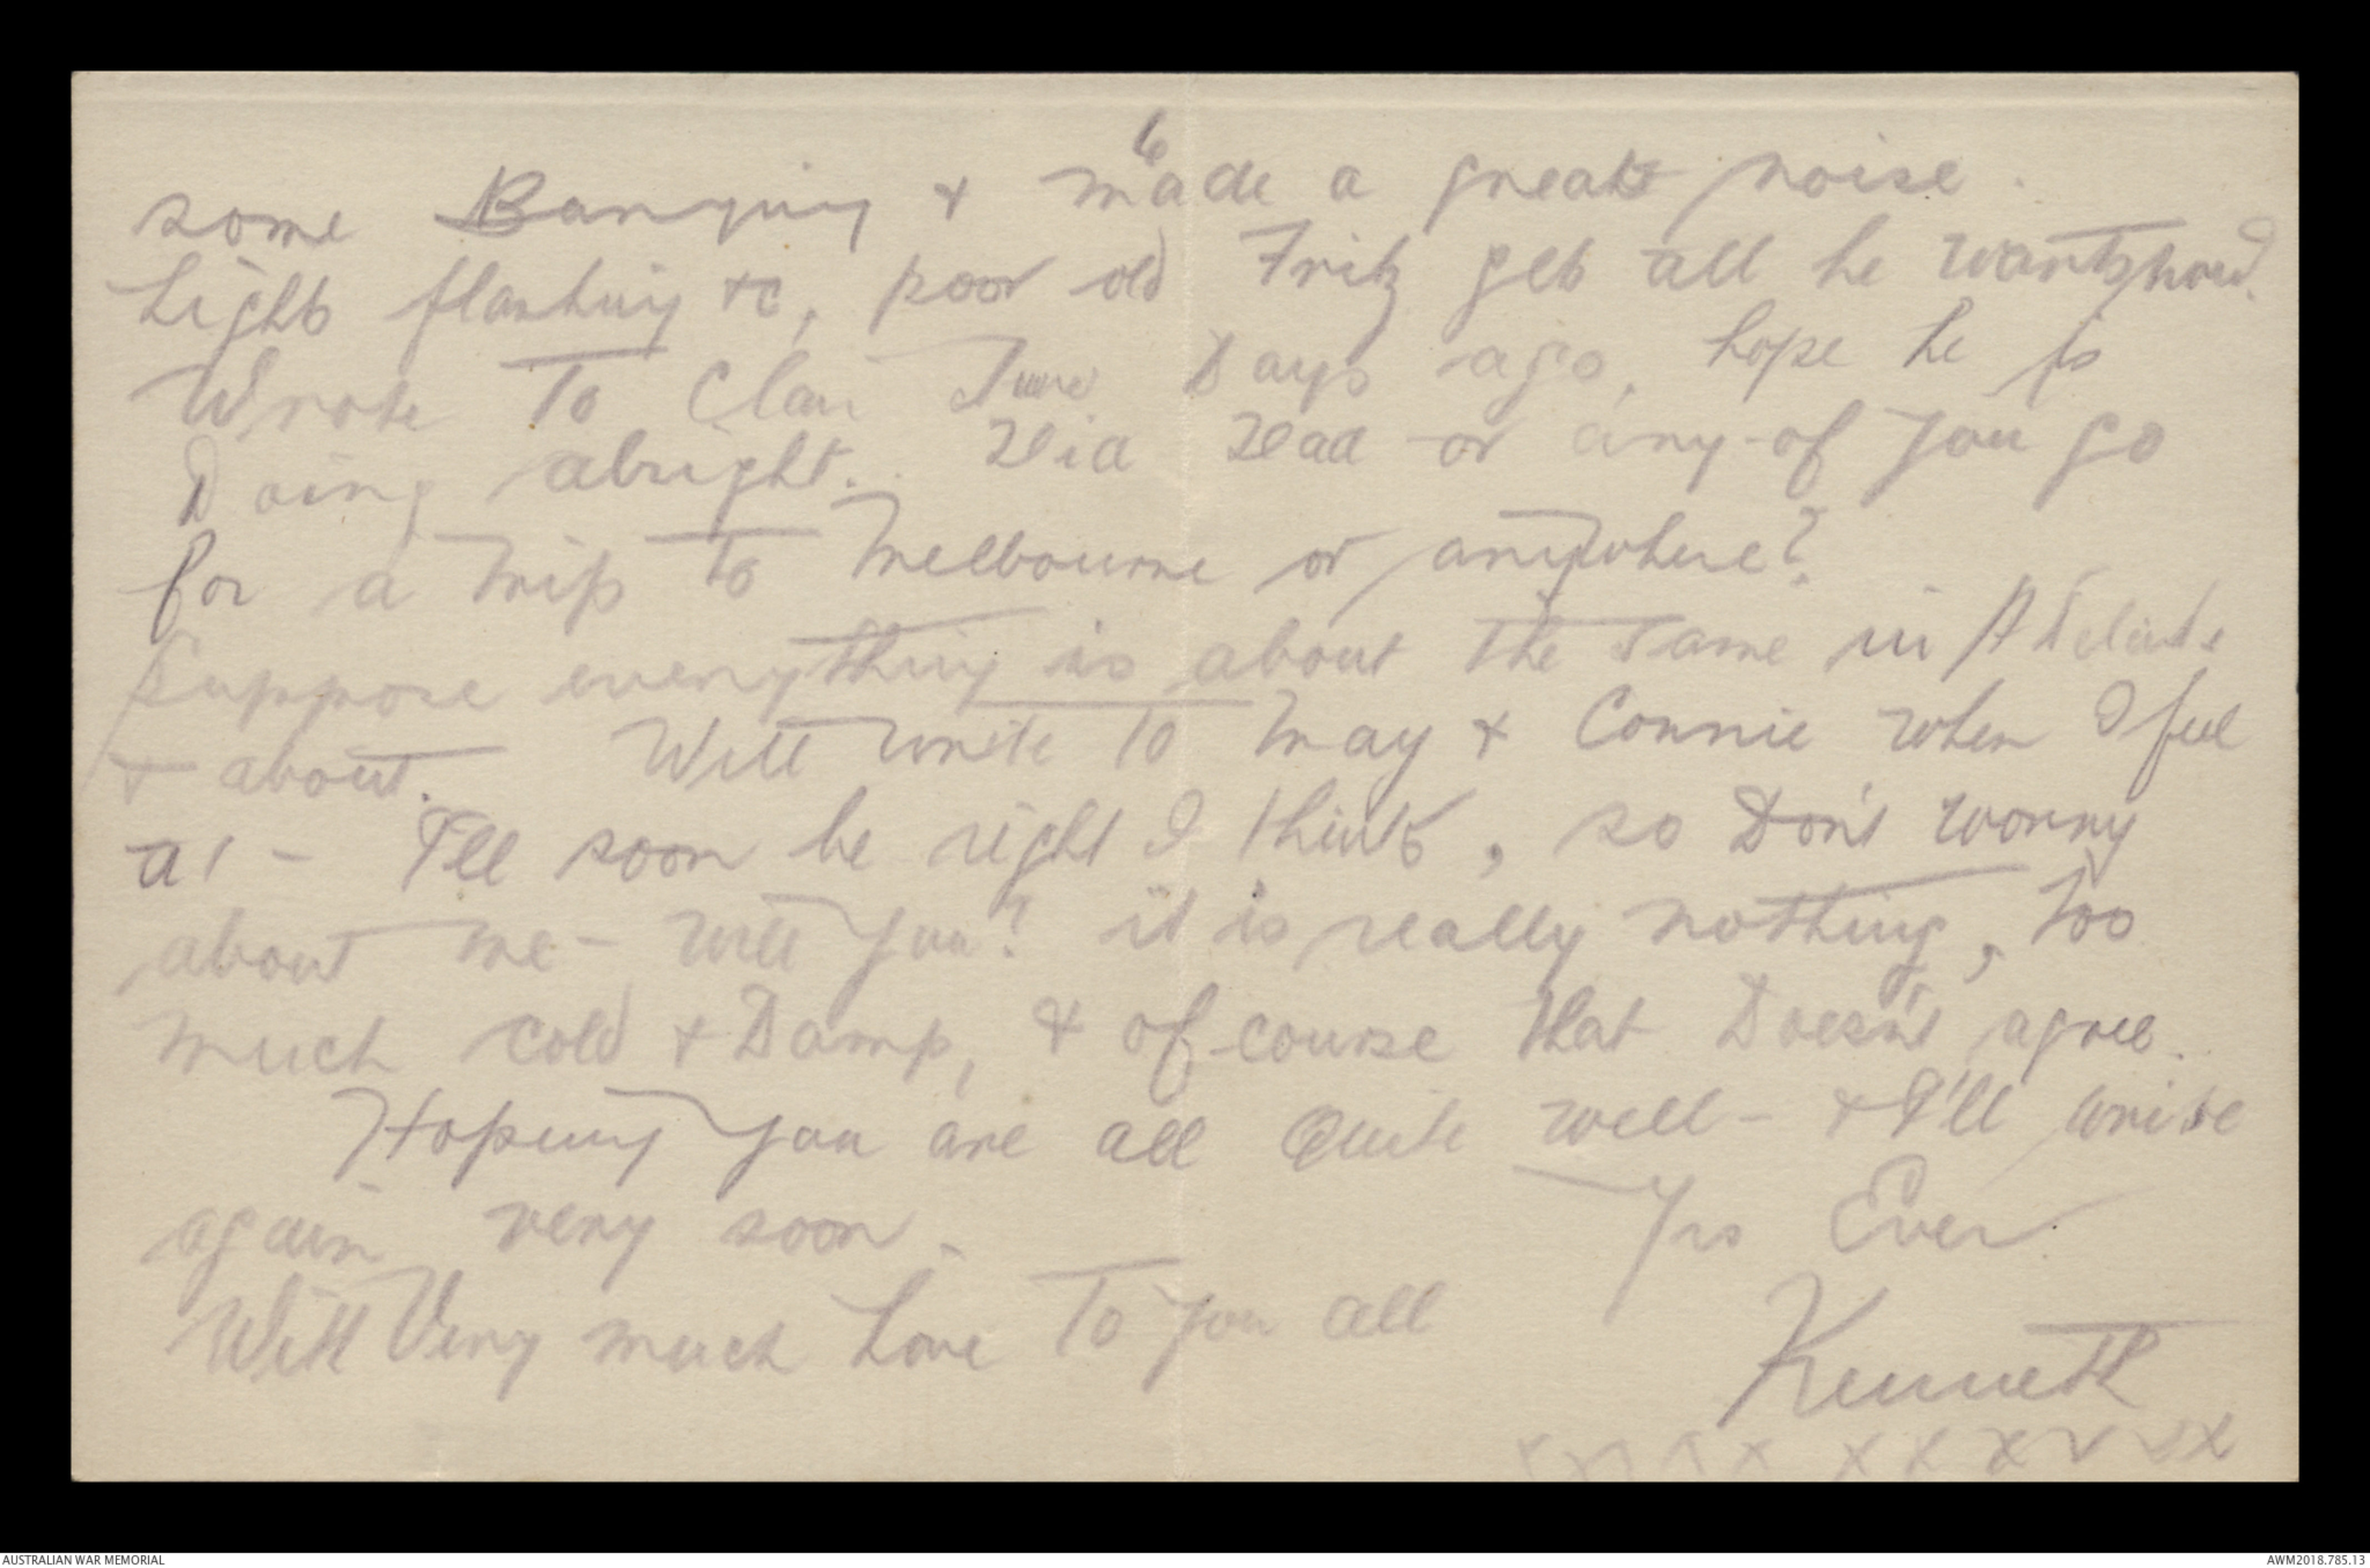 6
some Banging & made a great noise.
Lights flashing &c, poor old Fritz gets all he wants now.
Wrote To Clar Two Days ago, hope he is
Doing alright. Did Dad or any of you go
for a trip to Melbourne or anywhere?
Suppose everything is about the same in Adelaide
& about. Will write To May & Connie when I feel
at - I'll soon be right I think, so Don't worry
about me - will you? it is really nothing, Too
much cold & Damp, & of course that Doesn't agree.
Hoping you are all Quite well - & I'll write
again very soon. Yrs Ever
With Very much Love To you all
Kenneth
x x x x x x x x x x x
AUSTRALIAN WAR MEMORIAL
AWM2018.785.13